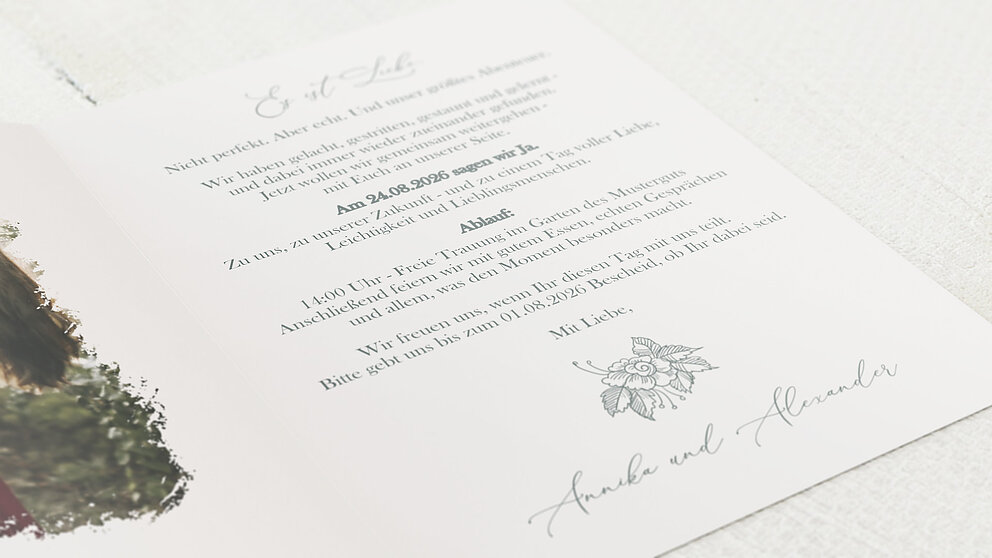 Es ist Liebe
Nicht perfekt. Aber echt. Und unser größtes Abenteuer.
Wir haben gelacht, gestritten, gestaunt und gelernt -
und dabei immer wieder zueinander gefunden.
Jetzt wollen wir gemeinsam weitergehen -
mit Euch an unserer Seite.
Am 24.08.2026 sagen wir Ja.
Zu uns, zu unserer Zukunft - und zu einem Tag voller Liebe,
Leichtigkeit und Lieblingsmenschen.
Ablauf:
14:00 Uhr - Freie Trauung im Garten des Musterguts
Anschließend feiern wir mit gutem Essen, echten Gesprächen
und allem, was den Moment besonders macht.
Wir freuen uns, wenn Ihr diesen Tag mit uns teilt.
Bitte gebt uns bis zum 01.08.2026 Bescheid, ob Ihr dabei seid.
Mit Liebe,
Annika und Alexander